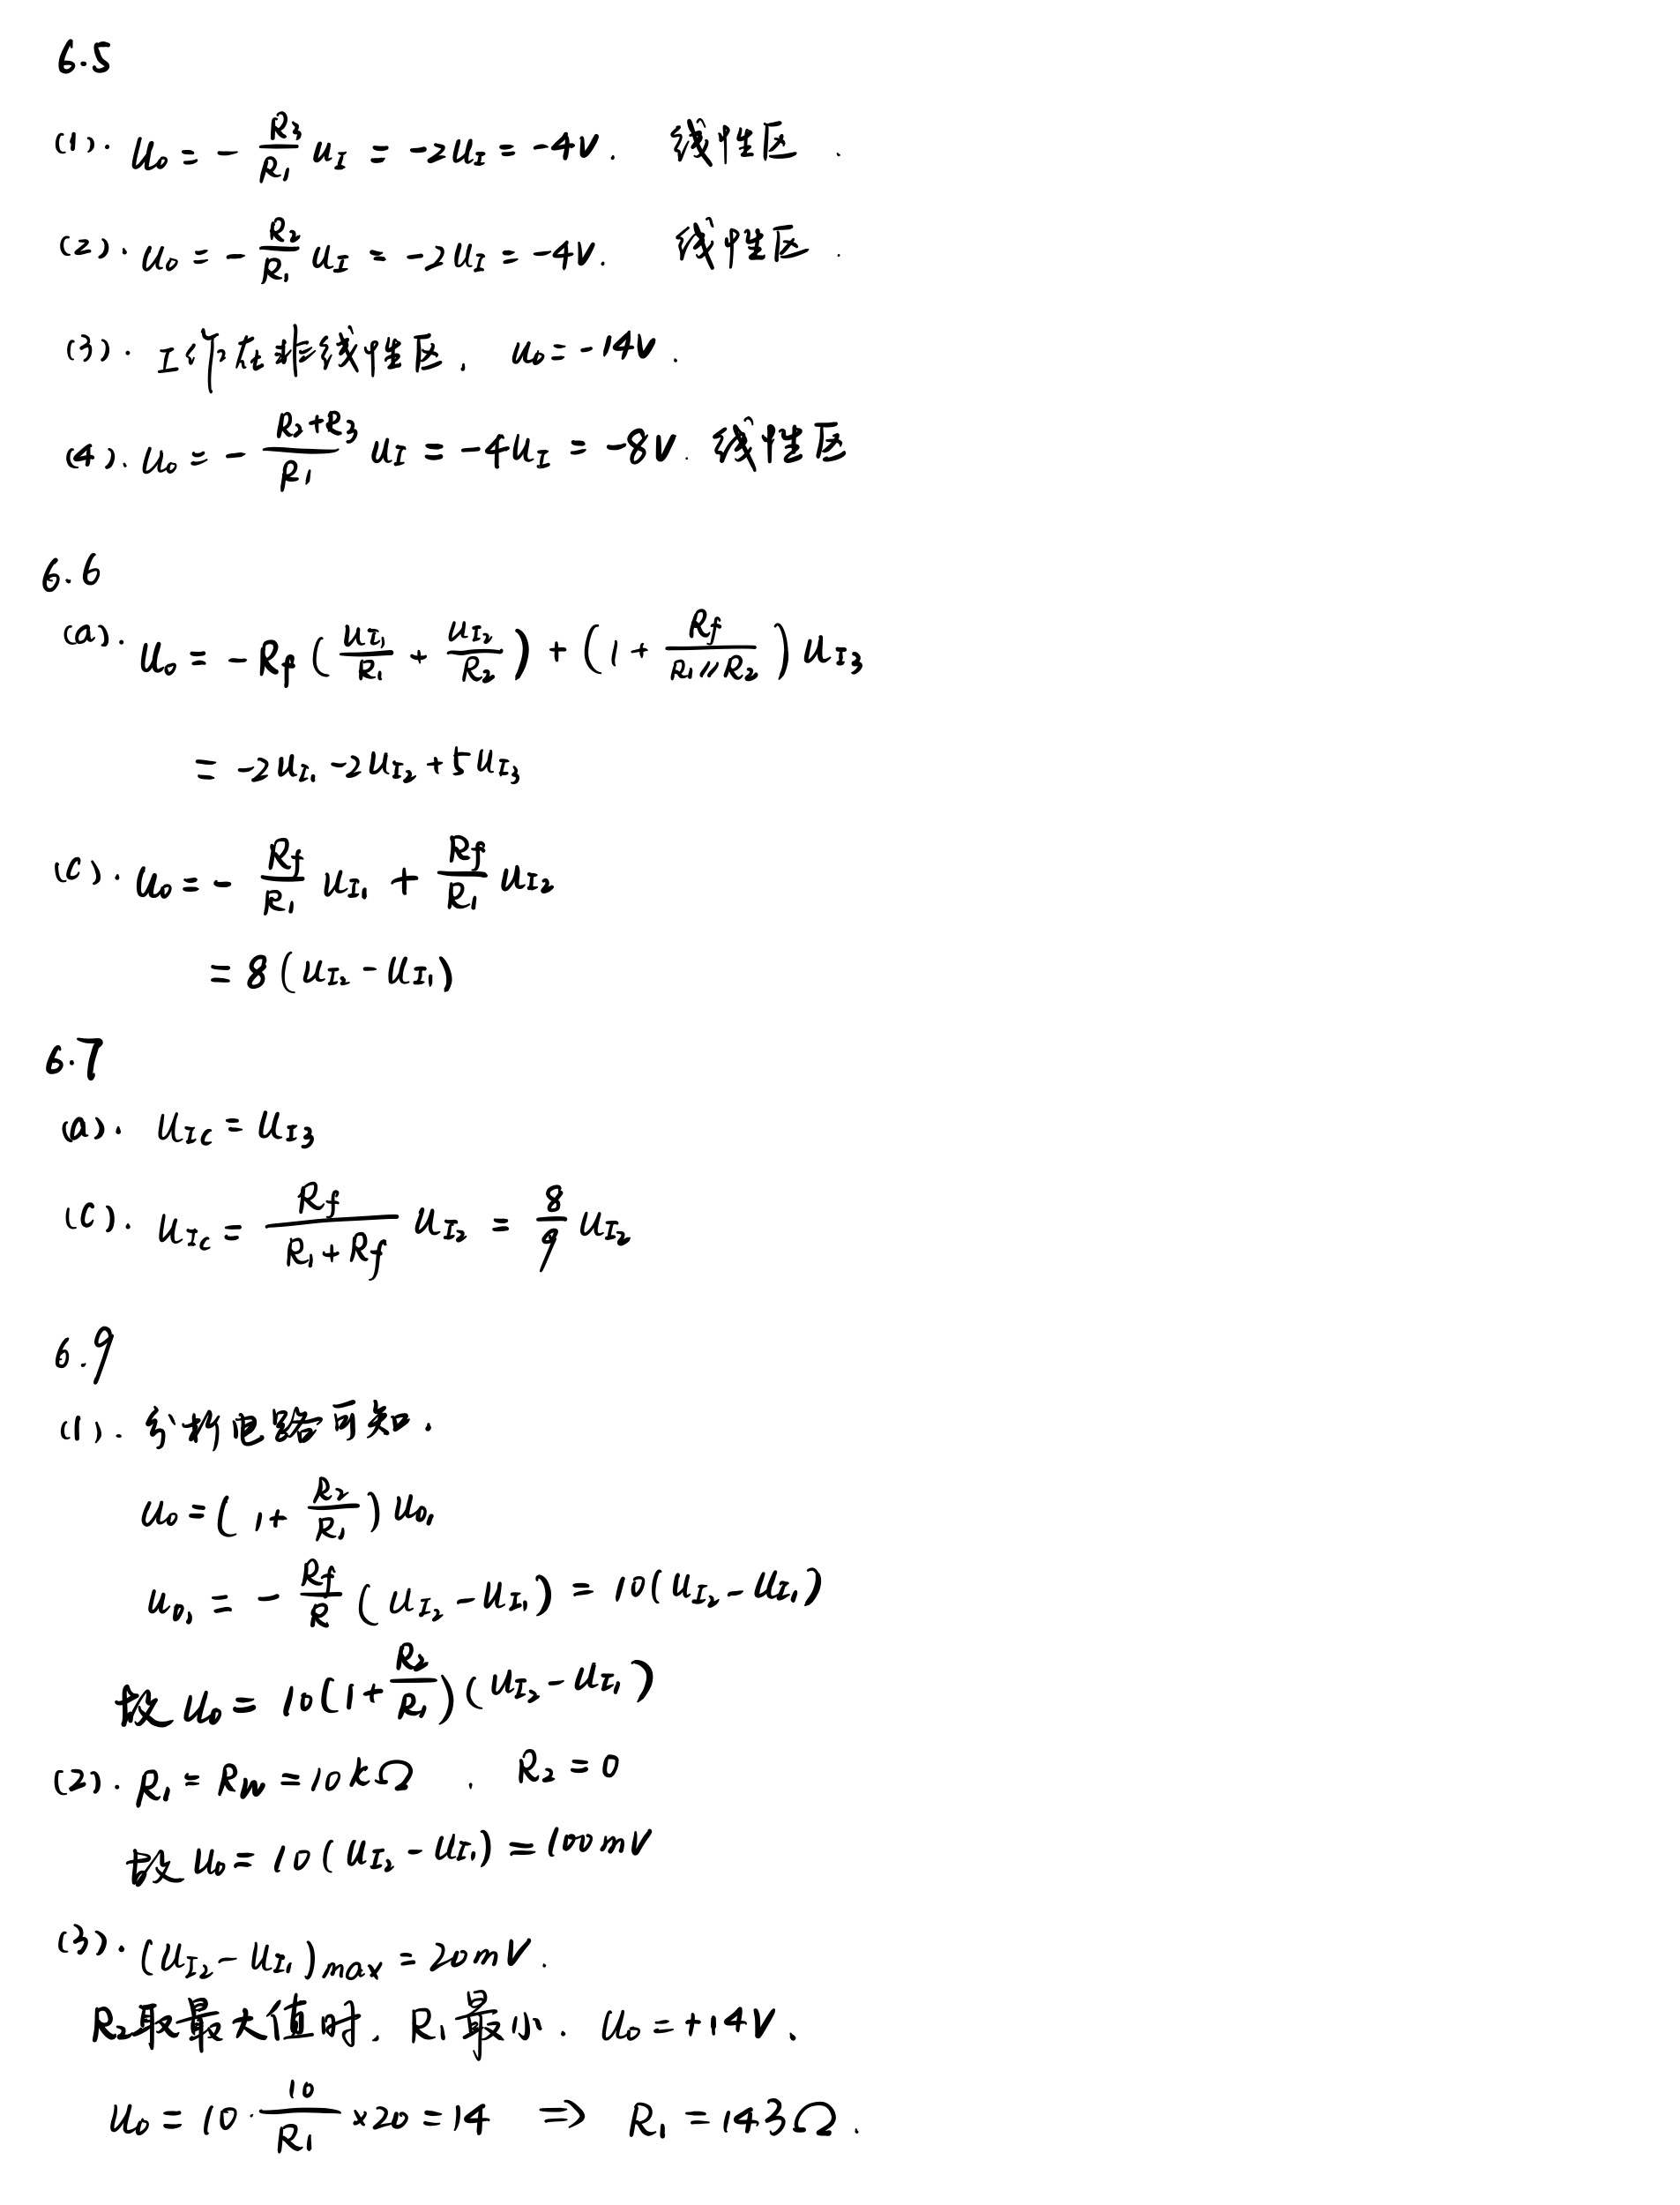 6.5
(1). u₀ = - R₃/R₁ u_I = -2u_I = -4V. 线性区.
(2). u₀ = - R₂/R₁ u_I = -2u_I = -4V. 线性区.
(3). 工作在非线性区, u₀ = -14V.
(4). u₀ = - (R₂+R₃)/R₁ u_I = -4u_I = -8V. 线性区
6.6
(a). u₀ = -R_f (u_I₁/R₁ + u_I₂/R₂) + (1 + R_f/(R₁∥R₂)) u_I₃
= -2u_I₁ -2u_I₂ + 5u_I₃
(c). u₀ = - R_f/R₁ u_I₁ + R_f/R₁ u_I₂
= 8(u_I₂ - u_I₁)
6.7
(a). u_Ic = u_I₃
(c). u_Ic = R_f/(R₁+R_f) u_I₂ = 8/9 u_I₂
6.9
(1). 分析电路可知.
u₀ = (1 + R₂/R₁) u₀₁
u₀₁ = - R_f/R (u_I₂ - u_I₁) = 10(u_I₂ - u_I₁)
故 u₀ = 10(1 + R₂/R₁)(u_I₂ - u_I₁)
(2). R₁ = R_W = 10kΩ , R₂ = 0
故 u₀ = 10(u_I₂ - u_I₁) = 100mV
(3). (u_I₂ - u_I₁)max = 20mV.
R₂取最大值时, R₁最小. u₀ = +14V.
u₀ = 10·10/R₁ ×20 = 14 ⇒ R₁ = 143Ω.